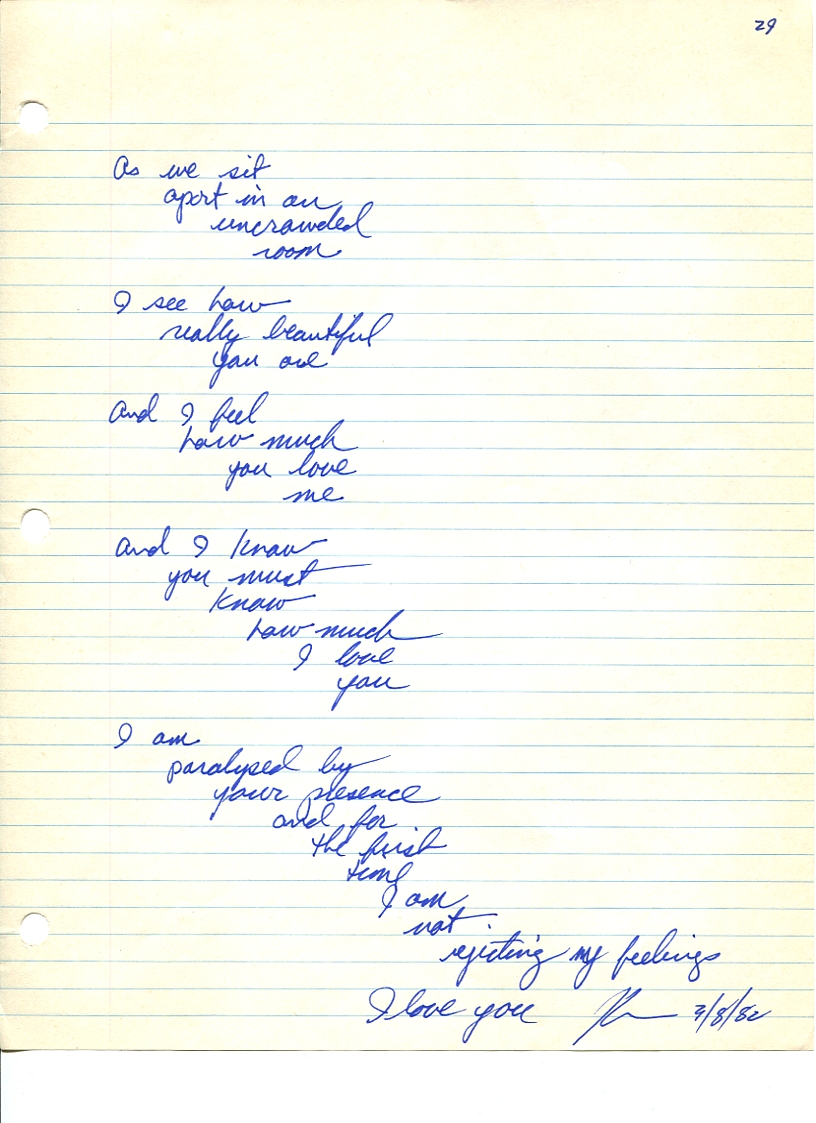 29
As we sit
apart in an
uncrowded
room
I see how
really beautiful
you are
And I feel
how much
you love
me
And I know
you must
know
how much
I love
you
I am
paralysed by
your presence
and for
the first
time
I am
not
rejecting my feelings
I love you /8/82